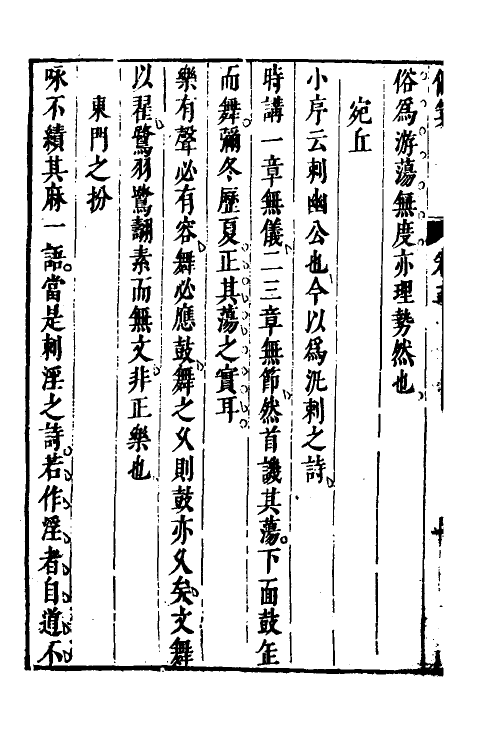 俗為游蕩無度亦理勢然也
宛丘
小序云刺幽公也今以為汎刺之詩
時講一章無儀二三章無節然首譏其蕩下面鼓缶
而舞彌冬歷夏正其蕩之實耳
樂有聲必有容舞必應鼓舞之久則鼓亦久矣文舞
以翟鷺羽鷺翿素而無文非正樂也
東門之枌
咏不績其麻一語當是刺淫之詩若作淫者自道不